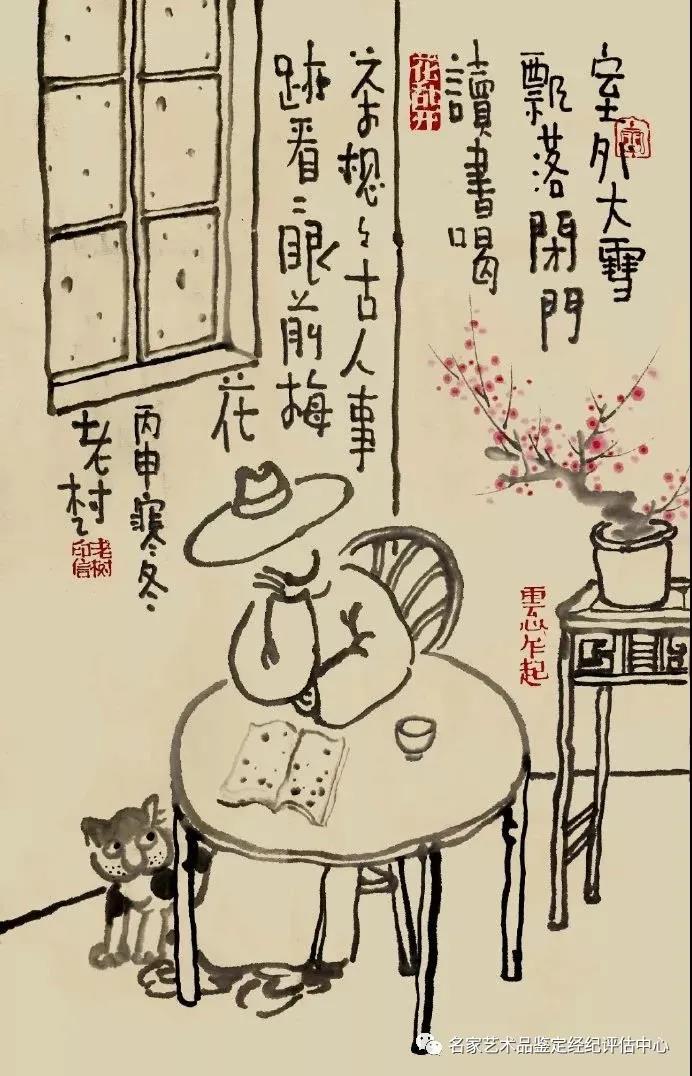 室外大雪
飄落閉門
讀書喝
茶想々古人事
跡看〻眼前梅
花
丙申寒冬
老树
花乱开
老树印信
雲心乍起
名家艺术品鉴定经纪评估中心